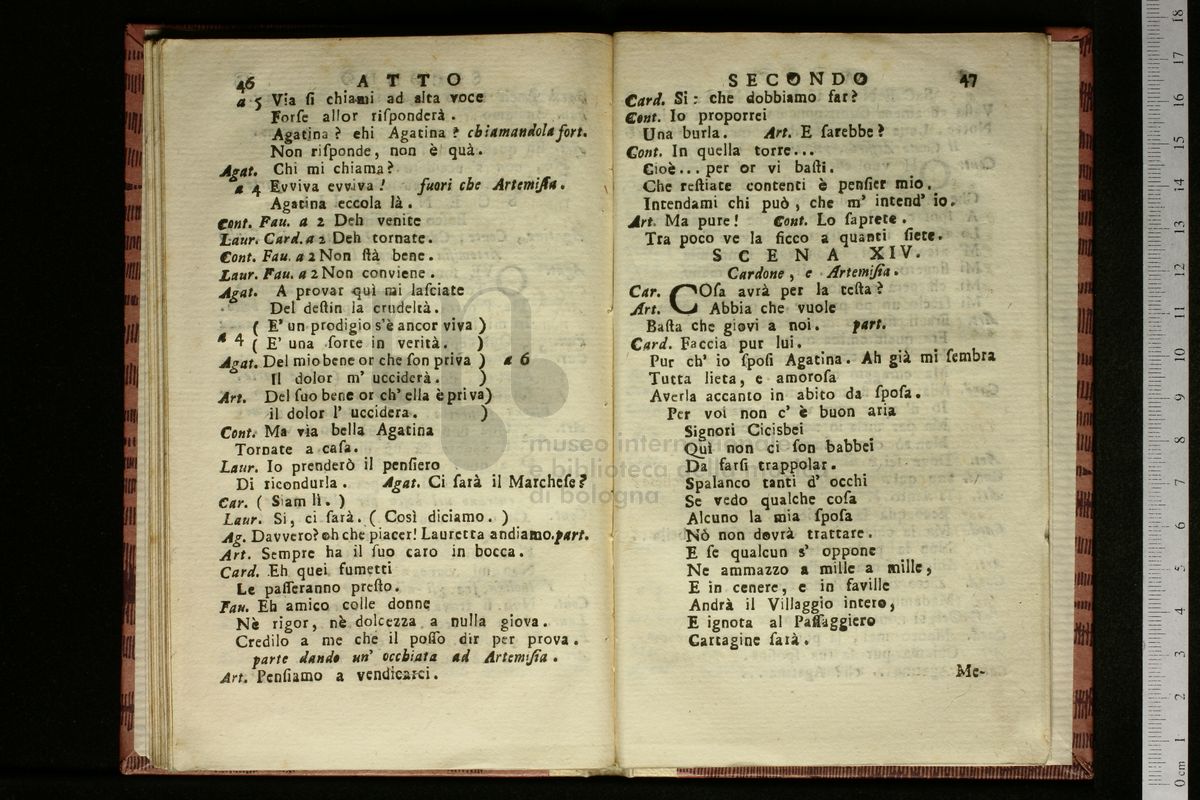 46 ATTO
a 5 Via ſi chiami ad alta voce
Forſe allor riſponderà.
Agatina? ehi Agatina? chiamandola fort.
Non riſponde, non è quà.
Agat. Chi mi chiama?
a 4 Evviva evviva! fuori che Artemiſia.
Agatina eccola là.
Cont. Fau. a 2 Deh venite
Laur. Card. a 2 Deh tornate.
Cont. Fau. a 2 Non ſtà bene.
Laur. Fau. a 2 Non conviene.
Agat. A provar quì mi laſciate
Del deſtin la crudeltà.
( E' un prodigio s'è ancor viva )
a 4 ( E' una ſorte in verità. )
Agat. Del mio bene or che ſon priva ) a 6
Il dolor m' ucciderà. )
Art. Del ſuo bene or ch' ella è priva)
il dolor l' uccidera. )
Cont. Ma via bella Agatina
Tornate a caſa.
Laur. Io prenderò il penſiero
Di ricondurla. Agat. Ci ſarà il Marcheſe?
Car. ( Siam lì. )
Laur. Si, ci ſarà. ( Così diciamo. )
Ag. Davvero? oh che piacer! Lauretta andiamo. part.
Art. Sempre ha il ſuo caro in bocca.
Card. Eh quei fumetti
Le paſſeranno preſto.
Fau. Eh amico colle donne
Nè rigor, nè dolcezza a nulla giova.
Credilo a me che il poſſo dir per prova.
parte dando un' occhiata ad Artemiſia.
Art. Penſiamo a vendicarci.
SECONDO 47
Card. Si: che dobbiamo far?
Cont. Io proporrei
Una burla. Art. E ſarebbe?
Cont. In quella torre...
Cioè... per or vi baſti.
Che reſtiate contenti è penſier mio.
Intendami chi può, che m' intend' io.
Art. Ma pure! Cont. Lo ſaprete.
Tra poco ve la ficco a quanti ſiete.
SCENA XIV.
Cardone, e Artemiſia.
Car. COſa avrà per la teſta?
Art. Abbia che vuole
Baſta che giovi a noi. part.
Card. Faccia pur lui.
Pur ch' io ſpoſi Agatina. Ah già mi ſembra
Tutta lieta, e amoroſa
Averla accanto in abito da ſpoſa.
Per voi non c' è buon aria
Signori Cicisbei
Quì non ci ſon babbei
Da farſi trappolar.
Spalanco tanti d' occhi
Se vedo qualche coſa
Alcuno la mia ſpoſa
Nò non dovrà trattare.
E ſe qualcun s' oppone
Ne ammazzo a mille a mille,
E in cenere, e in faville
Andrà il Villaggio intero,
E ignota al Paſſaggiero
Cartagine ſarà.
Me-
museo internazionale
e biblioteca della musica
di bologna
0 cm 1 2 3 4 5 6 7 8 9 10 11 12 13 14 15 16 17 18